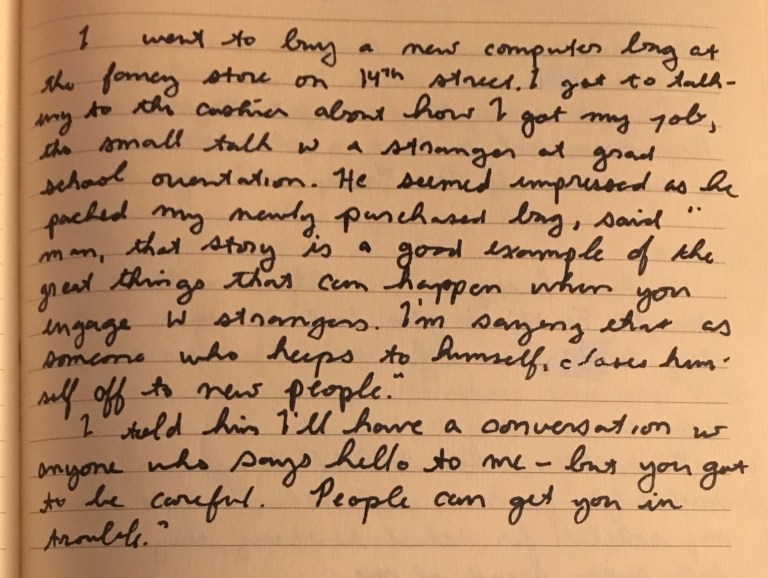 I went to buy a new computer bag at
the fancy store on 14th street. I got to talk-
ing to the cashier about how I got my job,
the small talk w a stranger at grad
school orientation. He seemed impressed as he
packed my newly purchased bag, said "
man, that story is a good example of the
great things that can happen when you
engage w strangers. I'm saying that as
someone who keeps to himself, closes him-
self off to new people."
I told him I'll have a conversation w
anyone who says hello to me - but you got
to be careful. People can get you in
trouble."